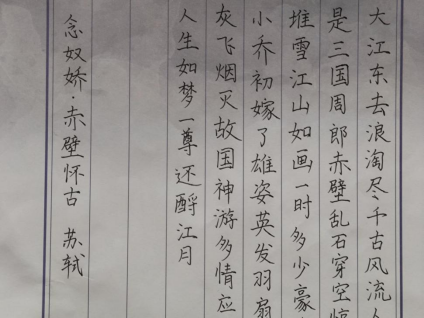 大江东去浪淘尽千古风流人
是三国周郎赤壁乱石穿空惊
堆雪江山如画一时多少豪
小乔初嫁了雄姿英发羽扇
灰飞烟灭故国神游多情应
人生如梦一尊还酹江月
念奴娇·赤壁怀古 苏轼